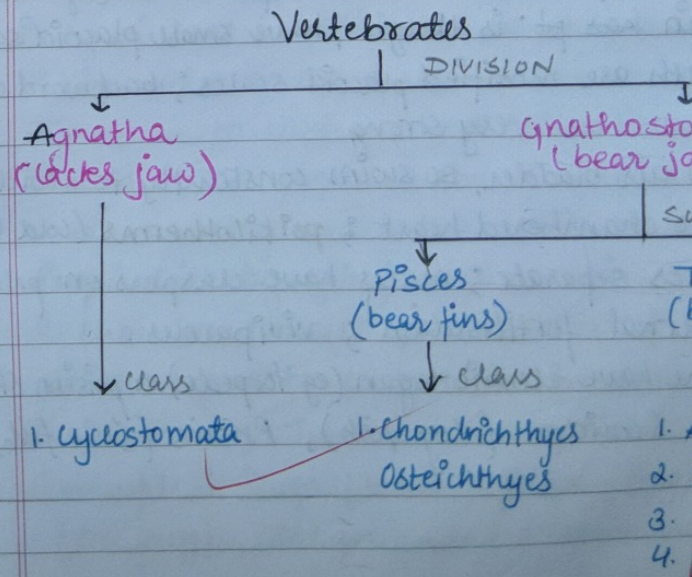 Vertebrates
DIVISION
Agnatha
(lacks jaw)
Gnathosto
(bear ja
Su
Pisces
(bear fins)
T
(
class
class
1. Cyclostomata
1. Chondrichthyes
Osteichthyes
1. A
2.
3.
4.